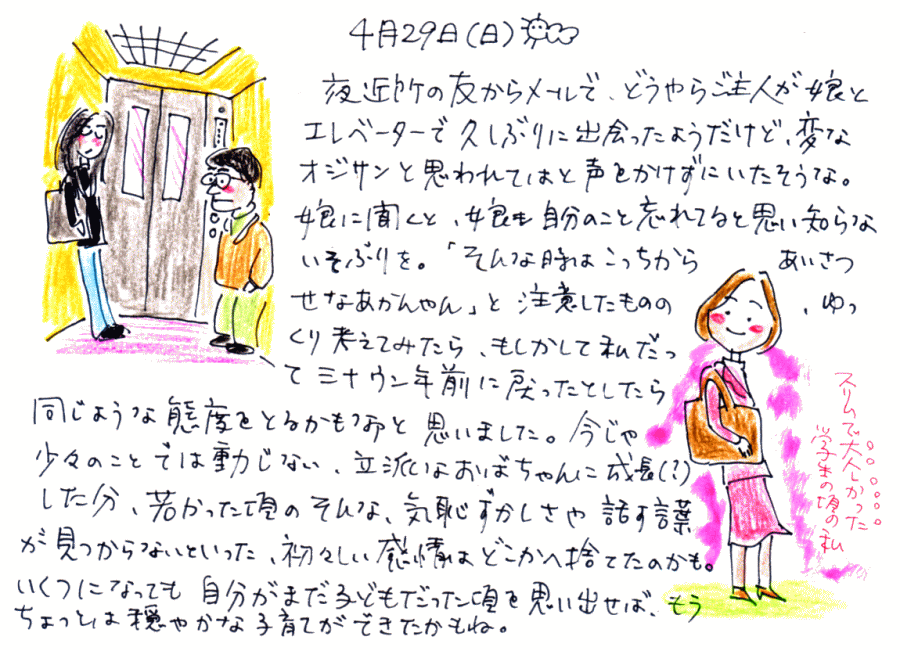 4月29日(日)
夜近所の友からメールで、どうやらご主人が娘と
エレベーターで久しぶりに出会ったようだけど、変な
オジサンと思われてはと声をかけずにいたそうな。
娘に聞くと、娘も自分のこと忘れてると思い知らな
いそぶりを。「そんな時はこっちから あいさつ
せなあかんやん」と注意したものの 、ゆっ
くり考えてみたら、もしかして私だっ
て三十ウン年前に戻ったとしたら
同じような態度をとるかも命と思いました。今じゃ
少々のことでは動じない、立派なおばちゃんに成長(?)
した分、若かった頃のそんな、気恥ずかしさや話す言葉
が見つからないといった、初々しい感情はどこかへ捨てたのかも。
いくつになっても自分がまだ子どもだった頃を思い出せば、もう
ちょっとは穏やかな子育てができたかもね。
スリムで大人しかった
学生の頃の私